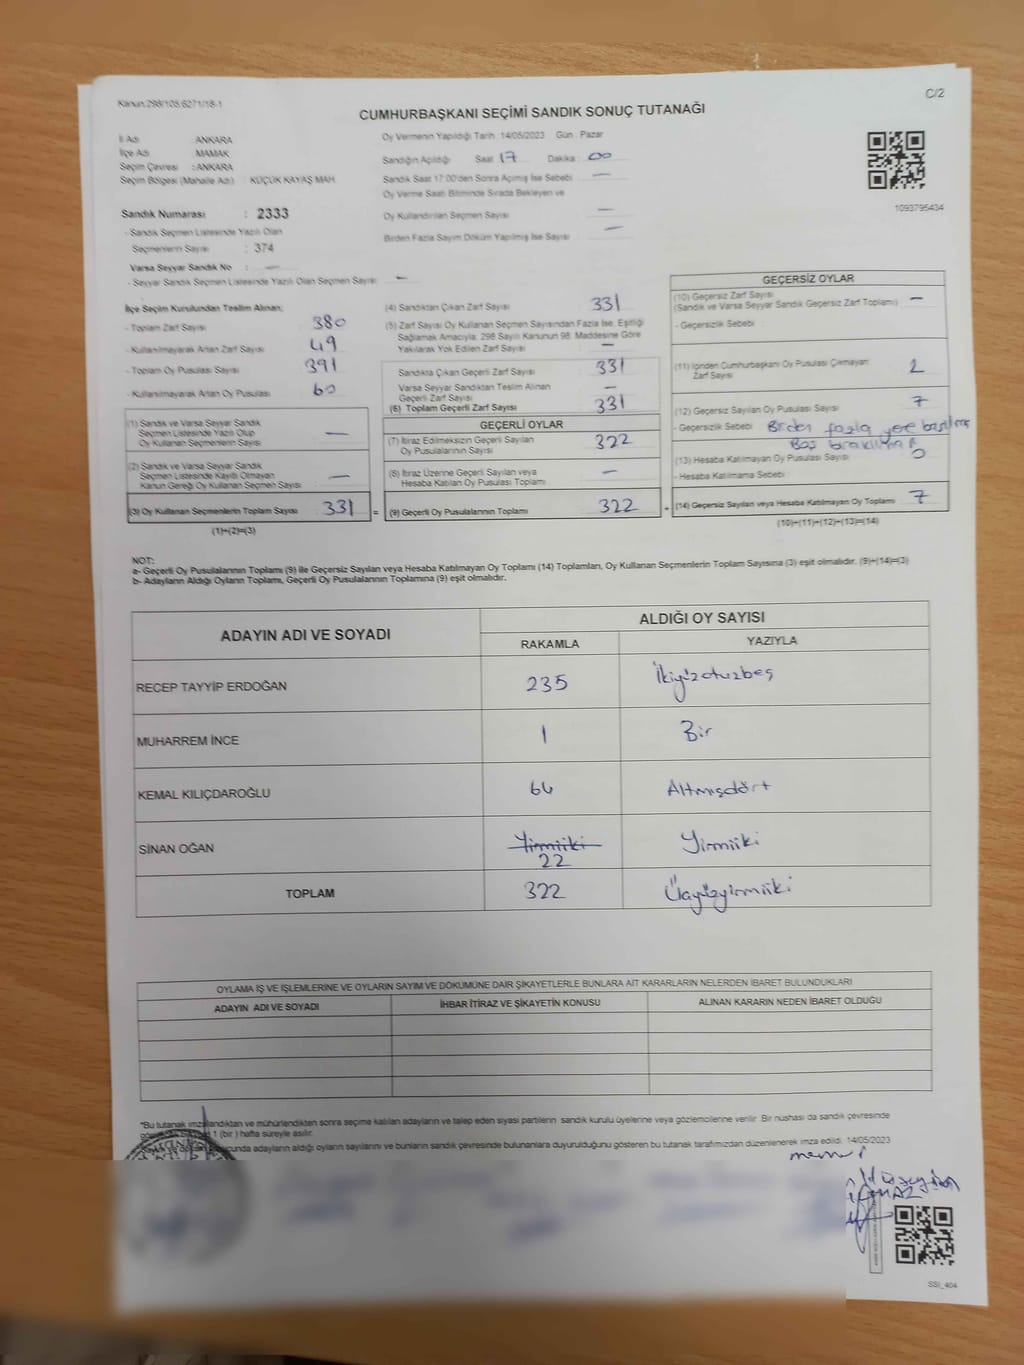 Kanun:298/105,6271/18-1
C/2
CUMHURBAŞKANI SEÇİMİ SANDIK SONUÇ TUTANAĞI
İl Adı : ANKARA
İlçe Adı : MAMAK
Seçim Çevresi : ANKARA
Seçim Bölgesi (Mahalle Adı) : KÜÇÜK KAYAŞ MAH.
Sandık Numarası : 2333
- Sandık Seçmen Listesinde Yazılı Olan
Seçmenlerin Sayısı : 374
Varsa Seyyar Sandık No : —
- Seyyar Sandık Seçmen Listesinde Yazılı Olan Seçmen Sayısı : —
Oy Vermenin Yapıldığı Tarih :14/05/2023 Gün : Pazar
Sandığın Açıldığı Saat 17 Dakika : 00
Sandık Saat 17:00'den Sonra Açılmış İse Sebebi —
Oy Verme Saati Bitiminde Sırada Bekleyen ve
Oy Kullandırılan Seçmen Sayısı —
Birden Fazla Sayım Döküm Yapılmış İse Sayısı —
1093795434
İlçe Seçim Kurulundan Teslim Alınan;
- Toplam Zarf Sayısı 380
- Kullanılmayarak Artan Zarf Sayısı 49
- Toplam Oy Pusulası Sayısı 391
- Kullanılmayarak Artan Oy Pusulası 60
(1) Sandık ve Varsa Seyyar Sandık
Seçmen Listesinde Yazılı Olup
Oy Kullanan Seçmenlerin Sayısı —
(2) Sandık ve Varsa Seyyar Sandık
Seçmen Listesinde Kayıtlı Olmayan
Kanun Gereği Oy Kullanan Seçmen Sayısı —
(3) Oy Kullanan Seçmenlerin Toplam Sayısı 331 =
(1)+(2)=(3)
(4) Sandıktan Çıkan Zarf Sayısı 331
(5) Zarf Sayısı Oy Kullanan Seçmen Sayısından Fazla İse, Eşitliği
Sağlamak Amacıyla, 298 Sayılı Kanunun 98. Maddesine Göre
Yakılarak Yok Edilen Zarf Sayısı —
Sandıkta Çıkan Geçerli Zarf Sayısı 331
Varsa Seyyar Sandıktan Teslim Alınan
Geçerli Zarf Sayısı —
(6) Toplam Geçerli Zarf Sayısı 331
GEÇERLİ OYLAR
(7) İtiraz Edilmeksizin Geçerli Sayılan
Oy Pusulalarının Sayısı 322
(8) İtiraz Üzerine Geçerli Sayılan veya
Hesaba Katılan Oy Pusulası Toplamı —
(9) Geçerli Oy Pusulalarının Toplamı 322 +
GEÇERSİZ OYLAR
(10) Geçersiz Zarf Sayısı
(Sandık ve Varsa Seyyar Sandık Geçersiz Zarf Toplamı) —
- Geçersizlik Sebebi :
(11) İçinden Cumhurbaşkanı Oy Pusulası Çıkmayan
Zarf Sayısı 2
(12) Geçersiz Sayılan Oy Pusulası Sayısı 7
- Geçersizlik Sebebi : Birden fazla yere basılmış
Boş bırakılmış
(13) Hesaba Katılmayan Oy Pusulası Sayısı
- Hesaba Katılmama Sebebi :
(14) Geçersiz Sayılan veya Hesaba Katılmayan Oy Toplamı 7
(10)+(11)+(12)+(13)=(14)
NOT:
a- Geçerli Oy Pusulalarının Toplamı (9) ile Geçersiz Sayılan veya Hesaba Katılmayan Oy Toplamı (14) Toplamları, Oy Kullanan Seçmenlerin Toplam Sayısına (3) eşit olmalıdır. (9)+(14)=(3)
b- Adayların Aldığı Oyların Toplamı, Geçerli Oy Pusulalarının Toplamına (9) eşit olmalıdır.
ADAYIN ADI VE SOYADI ALDIĞI OY SAYISI
RAKAMLA YAZIYLA
RECEP TAYYİP ERDOĞAN 235 İkiyüzotuzbeş
MUHARREM İNCE 1 Bir
KEMAL KILIÇDAROĞLU 64 Altmışdört
SİNAN OĞAN Yirmiiki 22 Yirmiiki
TOPLAM 322 Üçyüzyirmiiki
OYLAMA İŞ VE İŞLEMLERİNE VE OYLARIN SAYIM VE DÖKÜMÜNE DAİR ŞİKAYETLERLE BUNLARA AİT KARARLARIN NELERDEN İBARET BULUNDUKLARI
ADAYIN ADI VE SOYADI İHBAR İTİRAZ VE ŞİKAYETİN KONUSU ALINAN KARARIN NEDEN İBARET OLDUĞU
*Bu tutanak imzalandıktan ve mühürlendikten sonra seçime katılan adayların ve talep eden siyasi partilerin sandık kurulu üyelerine veya gözlemcilerine verilir. Bir nüshası da sandık çevresinde
1 (bir) hafta süreyle asılır.
adayların aldığı oyların sayılarını ve bunların sandık çevresinde bulunanlara duyurulduğunu gösteren bu tutanak tarafımızdan düzenlenerek imza edildi. 14/05/2023
SSI_404